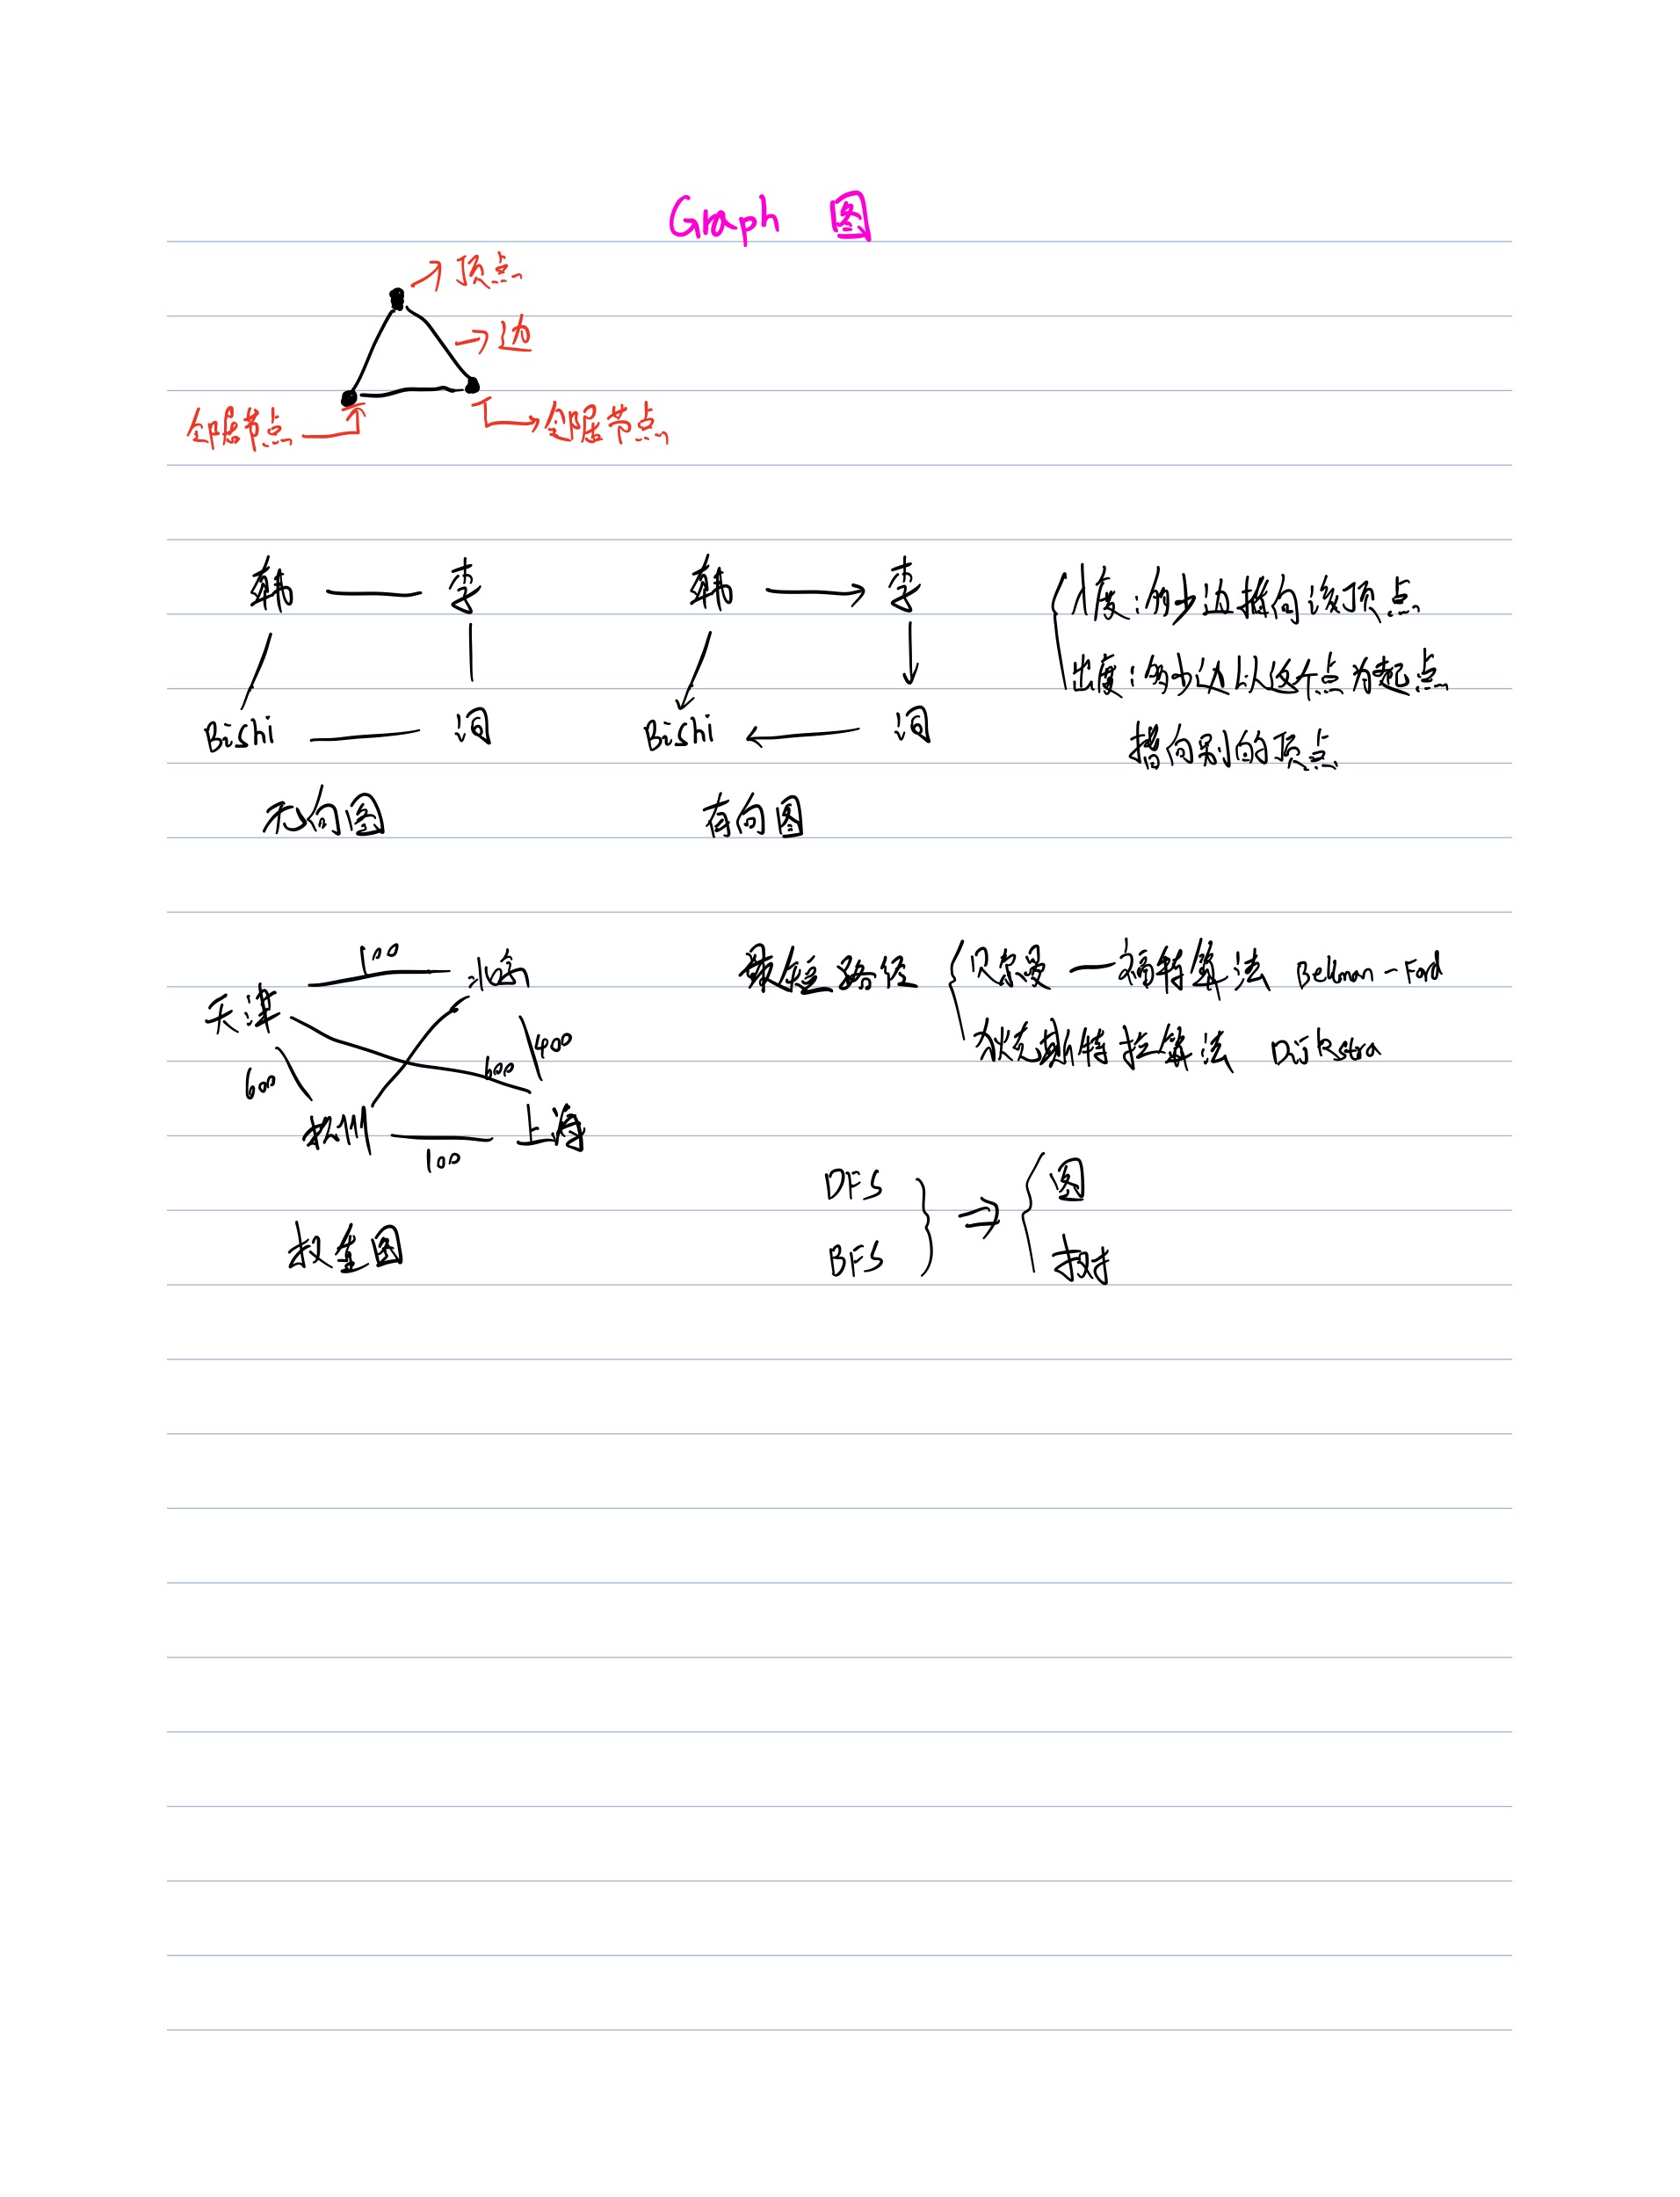 Graph 图
顶点
边
邻居节点 邻居节点
韩 李 韩 李
入度：多少边指向该顶点
出度：多少边以这个点为起点
Bishi 词 Bishi 词
指向别的顶点
无向图 有向图
100
天津 北京
最短路径 贝尔曼—福特算法 Bellman-Ford
狄克斯特拉算法 Dijkstra
600 600 400
杭州 上海
100
DFS 图
BFS 树
权重图